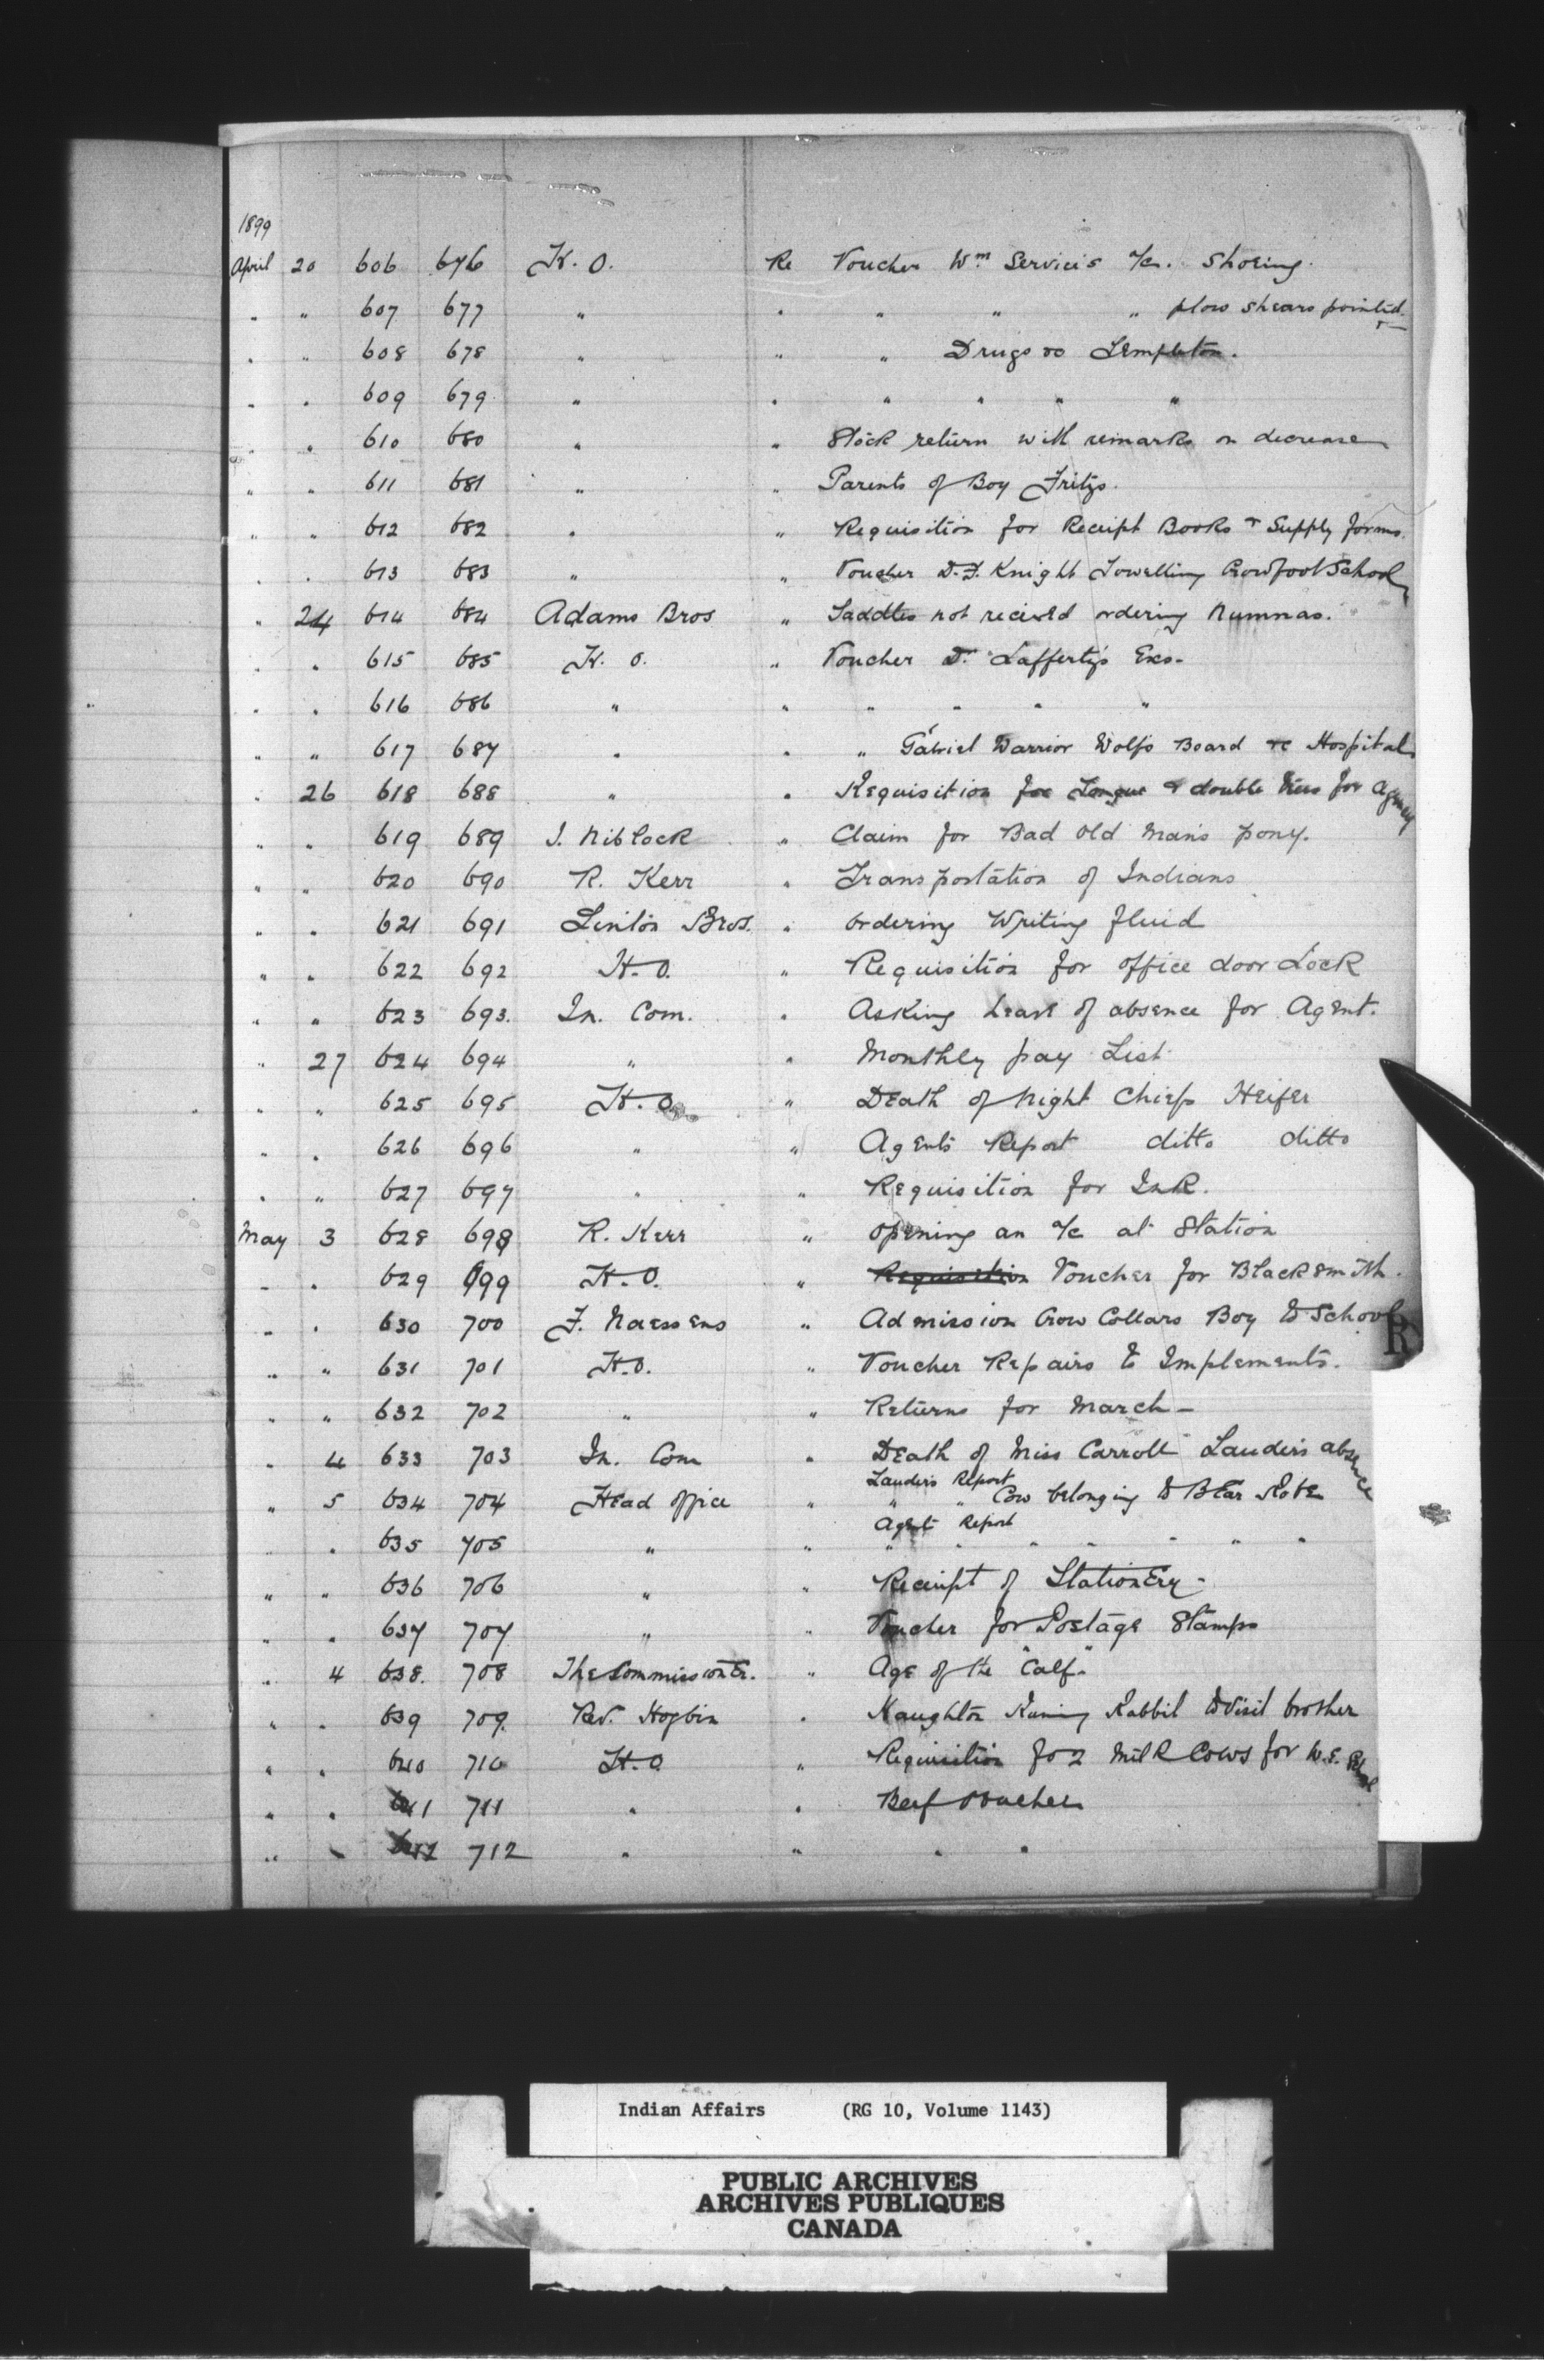 1899
April 20 606 676 H. O. Re Voucher Wm Servicis a/c. Shoeing.
" " 607 677 " " " " " plow shears pointed
" " 608 678 " " " Drugs Do Templeton.
" " 609 679 " " " " " "
" " 610 680 " " Stock return with remarks on decrease
" " 611 681 " " Parents of Boy Fritzs.
" " 612 682 " " Requisition for Receipt Books & Supply forms.
" " 613 683 " " Voucher D. F. Knight Towelling Crowfoot School
" 24 614 684 Adams Bros " Saddles not recieved ordering Numnas.
" " 615 685 H. O. " Voucher Dr Lafferty's Exs-
" " 616 686 " " " " " "
" " 617 687 " " " Gabriel Warrior Wolfs Board &c Hospital
" 26 618 688 " " Requisition for Tongue & double trees for Agency
" " 619 689 J. Niblock " Claim for Bad Old Man's pony.
" " 620 690 R. Kerr " Transportation of Indians
" " 621 691 Linton Bros. " Ordering Writing fluid
" " 622 692 H. O. " Requisition for office door Lock
" " 623 693. In. Com. " Asking Leave of absence for Agent.
" 27 624 694 " " Monthly pay List
" " 625 695 H. O. " Death of Night Chiefs Heifer
" " 626 696 " " Agents Report ditto ditto
" " 627 697 " " Requisition for Ink.
May 3 628 698 R. Kerr " Opening an a/c at Station
" " 629 699 H. O. " Requisition Voucher for Blacksmith.
" " 630 700 F. Naessens " Admission Crow Collars Boy to School
R
" " 631 701 H. O. " Voucher Repairs to Implements.
" " 632 702 " " Returns for March-
" 4 633 703 In. Com " Death of Miss Carroll Lauder's absence
Lauders Report
" 5 634 704 Head office " " " Cow belonging to Bear Robe
Agent Report
" " 635 705 " " " " " " " " "
" " 636 706 " " Receipt of Stationery-
" " 637 707 " " Voucher for Postage Stamps
" 4 638. 708 The Commissioner. " Age of the "Calf"
" " 639 709. Rev. Hogbin " Naughton Runing Rabbit to Visit brother
" " 640 710 H. O. " Requisition fo 2 Milk Cows for W. E.
" " 641 711 " " Beef Voucher
" " 642 712 " " " "
Indian Affairs (RG 10, Volume 1143)
PUBLIC ARCHIVES
ARCHIVES PUBLIQUES
CANADA